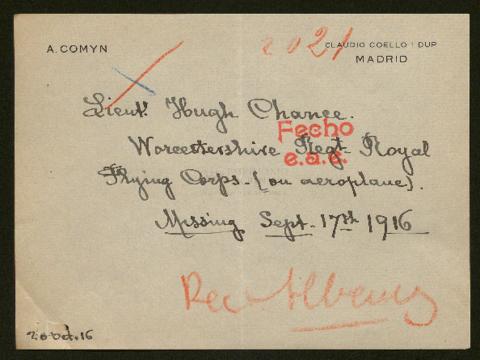 A. COMYN
2021
CLAUDIO COELLO 1 DUP
MADRID
Lieut. Hugh Chance.
Fecho
Worcestershire Regt. Royal
e.a.c.
Flying Corps. (on aeroplane).
Missing Sept. 17th 1916
20 Oct. 16